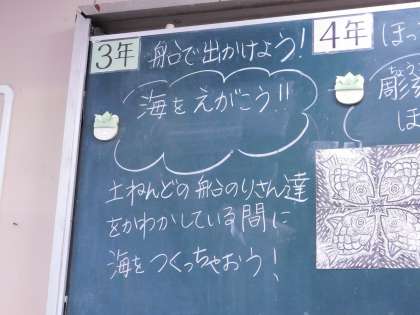 3年 船で出かけよう!
海をえがこう!!
土ねんどの船のりさん達
をかわかしている間に
海をつくっちゃおう!
4年 ほっ
彫
ほ